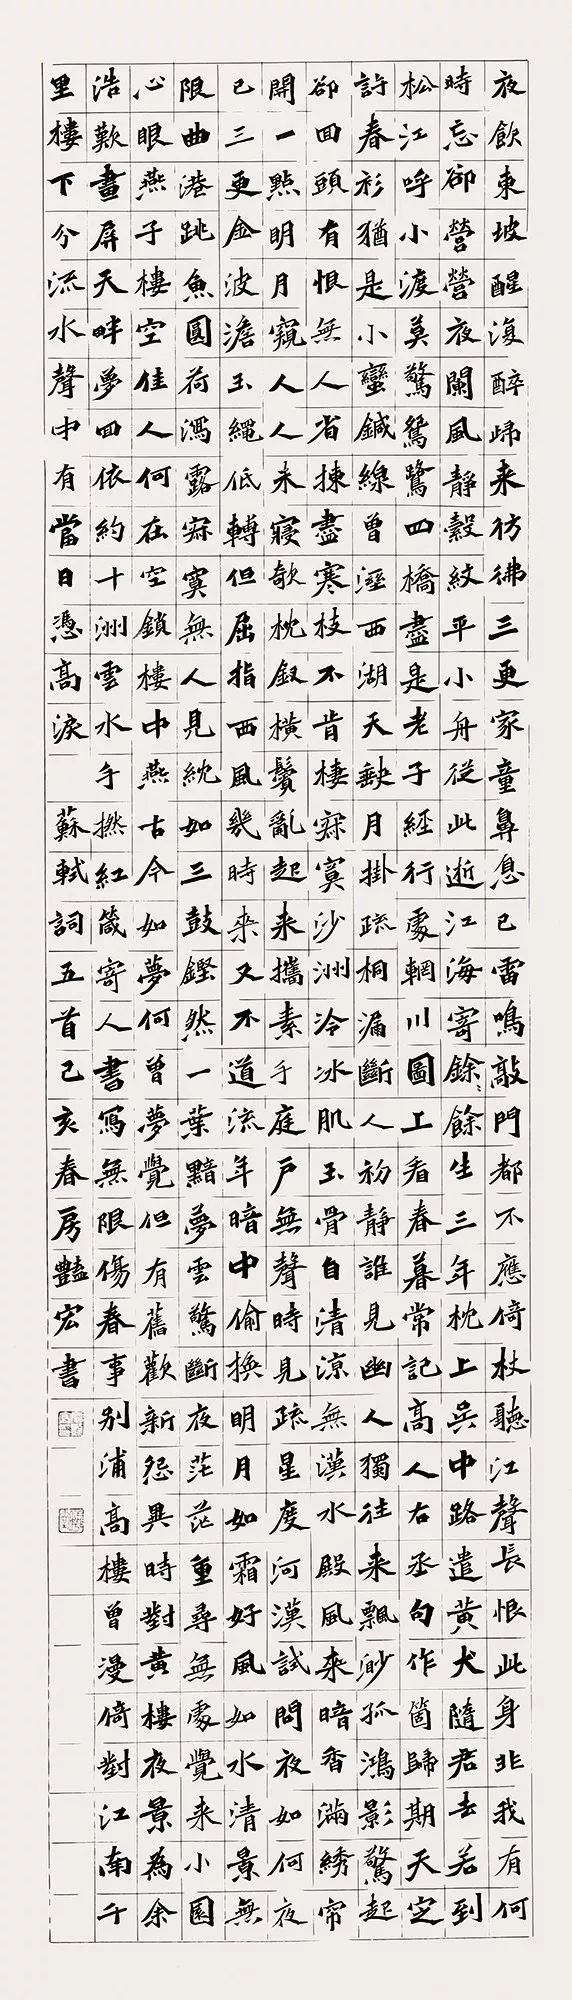 夜飲東坡醒復醉歸来彷彿三更家童鼻息已雷鳴敲門都不應倚杖聽江聲長恨此身非我有何
時忘卻營營夜闌風靜縠紋平小舟從此逝江海寄餘餘生三年枕上吳中路遣黃犬隨君去若到
松江呼小渡莫驚鴛鷺四橋盡是老子經行處輞川圖上看春暮常記高人右丞句作箇歸期天定
許春衫猶是小蠻鍼線曾溼西湖天缺月掛疏桐漏斷人初靜誰見幽人獨往来飄渺孤鴻影驚起
卻回頭有恨無人省揀盡寒枝不肯棲寂寞沙洲冷冰肌玉骨自清涼無漢水殿風来暗香滿綉帘
開一點明月窺人人未寢欹枕釵橫鬢亂起来攜素手庭戶無聲時見疏星度河漢試問夜如何夜
已三更金波澹玉繩低轉但屈指西風幾時来又不道流年暗中偷換明月如霜好風如水清景無
限曲港跳魚圓荷瀉露寂寞無人見紞如三鼓鏗然一葉黯夢雲驚斷夜茫茫重尋無處覺来小園
心眼燕子樓空佳人何在空鎖樓中燕古今如夢何曾夢覺但有舊歡新怨異時對黃樓夜景為余
浩歎畫屏天畔夢回依約十洲雲水手撚紅箋寄人書寫無限傷春事別浦高樓曾漫倚對江南千
里樓下分流水聲中有當日憑高淚 蘇軾詞五首己亥春房豔宏書